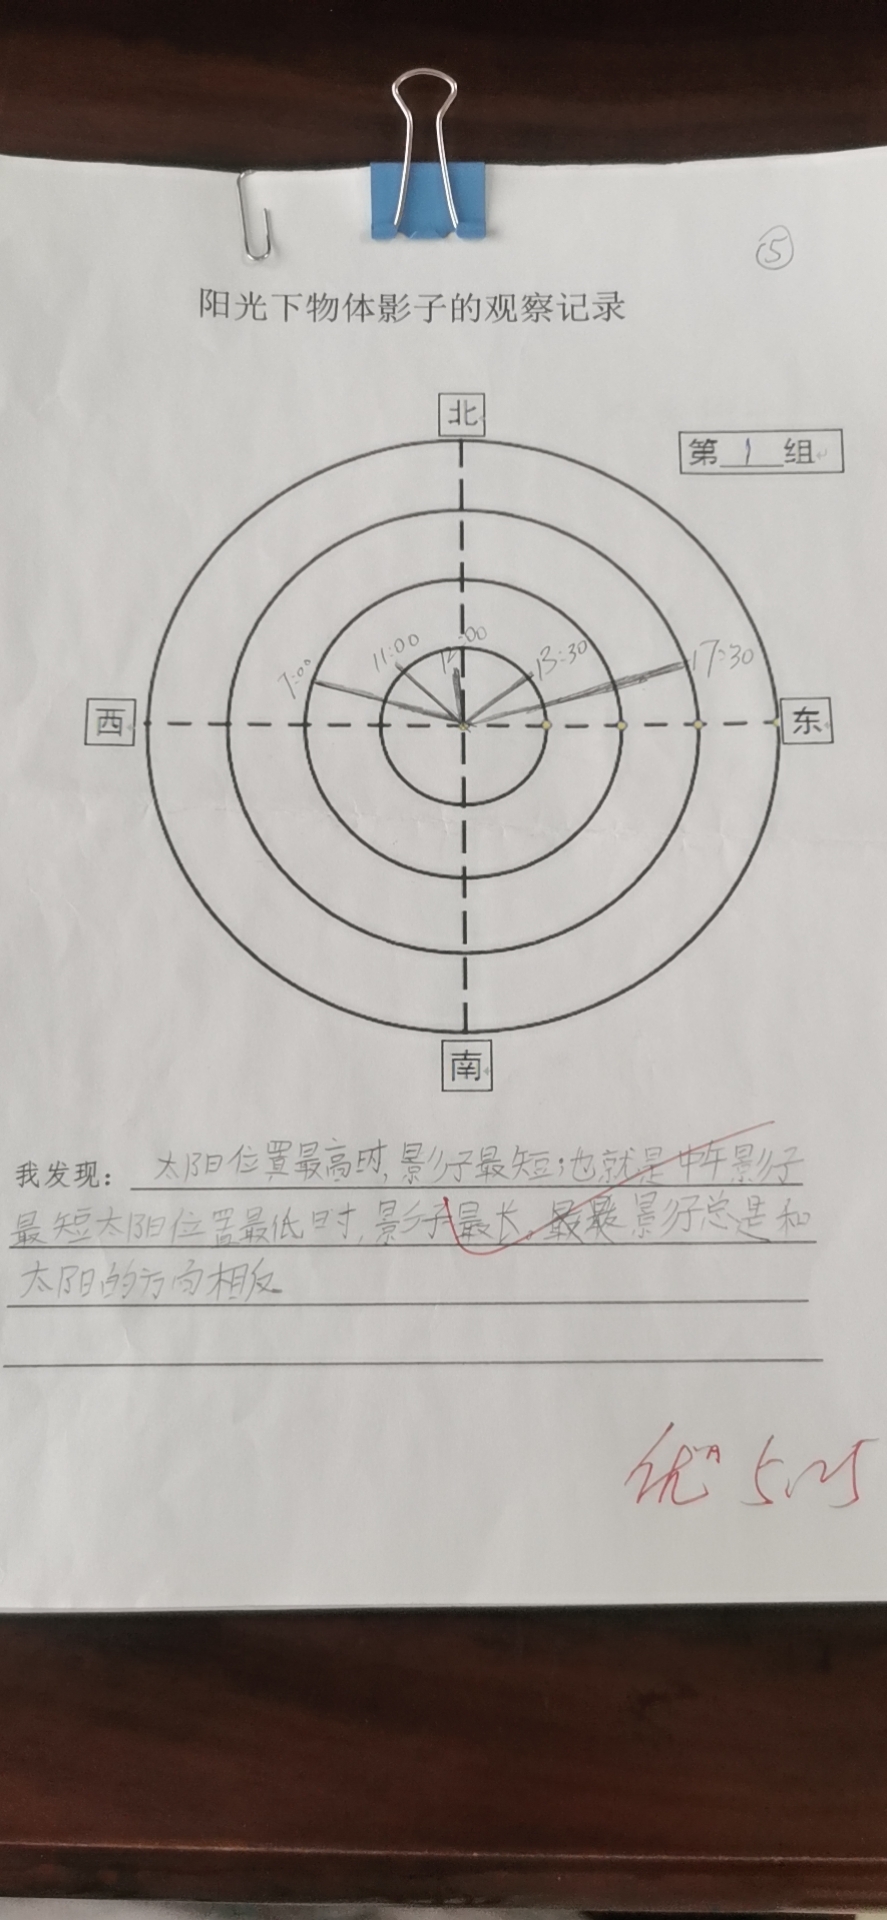 ⑤
阳光下物体影子的观察记录
北
第1组
7:00
11:00
12:00
13:30
17:30
西
东
南
我发现：太阳位置最高时,影子最短;也就是中午影子
最短太阳位置最低时,影子最长。影子总是和
太阳的方向相反
优